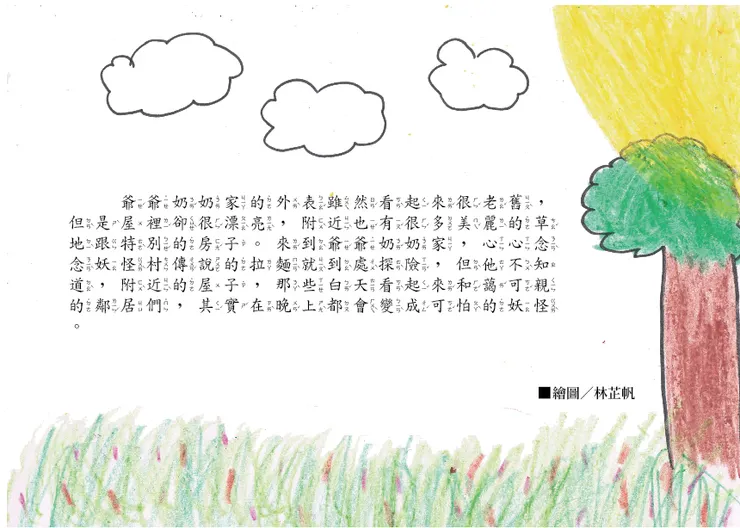 爺爺奶奶家的外表雖然看起來很老舊，
但是屋裡卻很漂亮，附近也有很多美麗的草
地跟特別的房子。來到爺爺奶奶家，心心念
念妖怪村傳說的拉麵就到處探險，但他不知
道，附近的屋子，那些白天看起來和藹可親
的鄰居們，其實在晚上都會變成可怕的妖怪
。
■繪圖／林芷帆